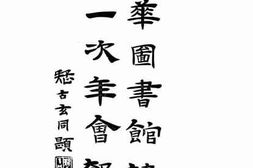 華圖書館
一次年會
古玄同題